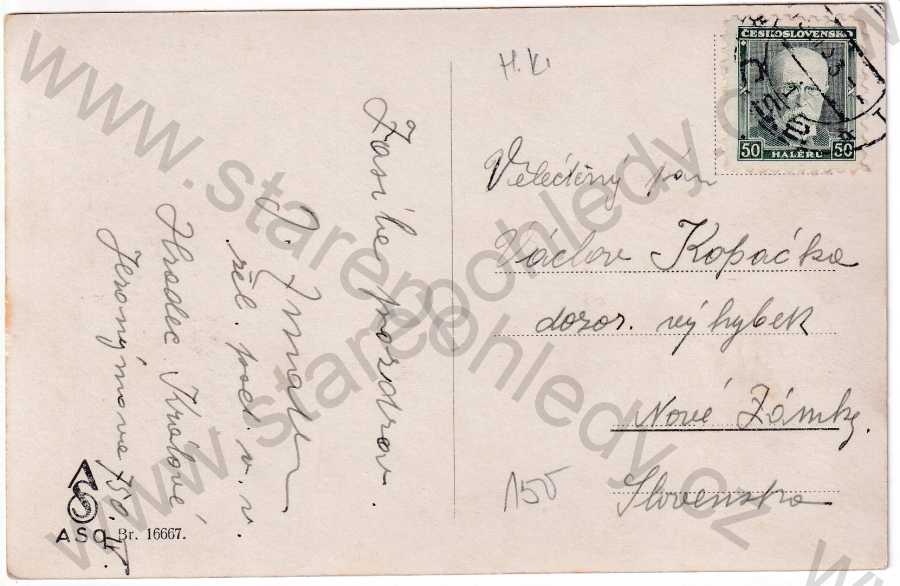 H.K.
ČESKOSLOVENSKO
50 HALÉRŮ 50
Velectěný pán
Václav Kopačka
dozor. výhybek
Nové Zámky.
Slovensko
155
Zasíláme pozdrav.
J.
žel. pod v. v.
Hradec Králové
Jeronýmova 750.
ASO Br. 16667.
www.starepohledy.cz